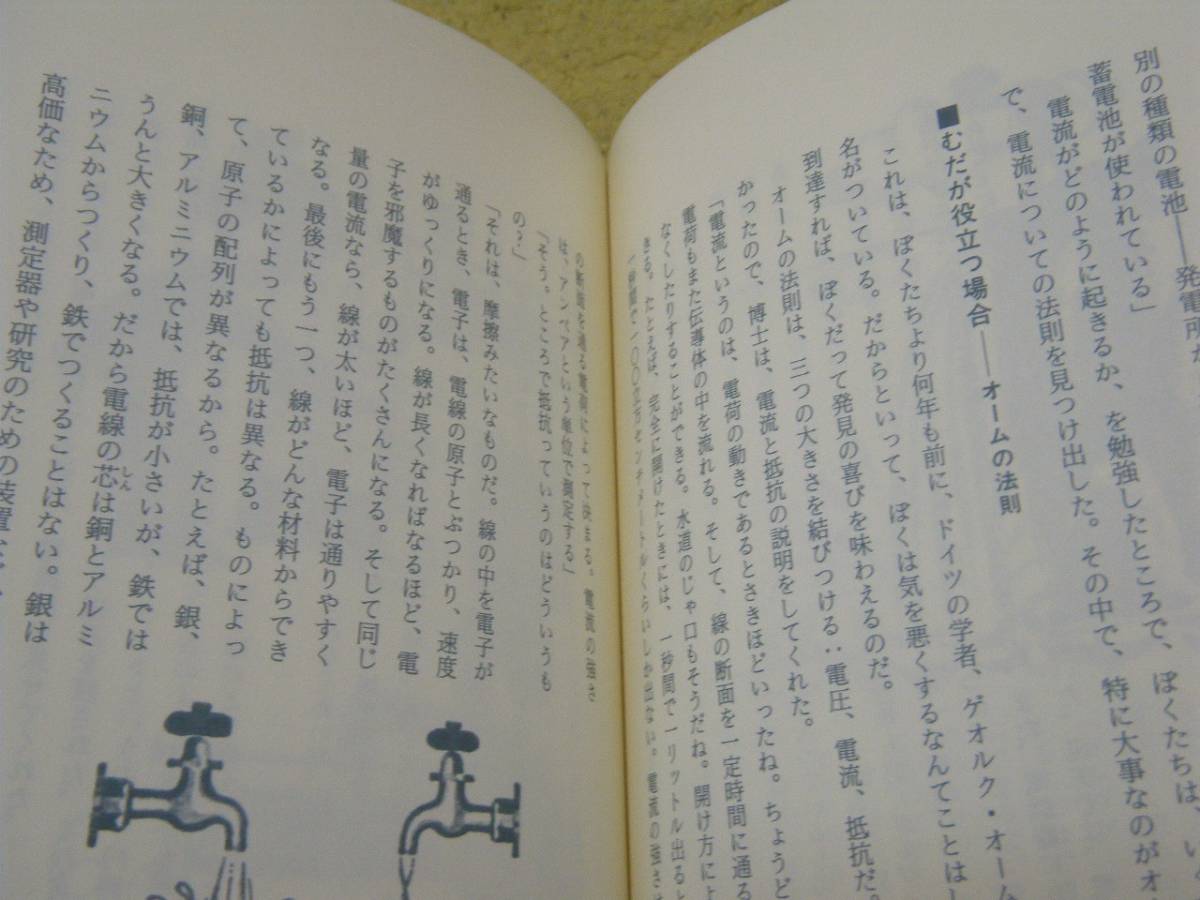 別の種類の電池――発電所
蓄電池が使われている」
電流がどのように起きるか、を勉強したところで、ぼくたちは、い
で、電流についての法則を見つけ出した。その中で、特に大事なのがオ
■むだが役立つ場合――オームの法則
これは、ぼくたちより何年も前に、ドイツの学者、ゲオルク・オーム
名がついている。だからといって、ぼくは気を悪くするなんてことはし
到達すれば、ぼくだって発見の喜びを味わえるのだ。
オームの法則は、三つの大きさを結びつける：電圧、電流、抵抗だ。
かったので、博士は、電流と抵抗の説明をしてくれた。
「電流というのは、電荷の動きであるとさきほどいったね。ちょうど
電荷もまた伝導体の中を流れる。そして、線の断面を一定時間に通る
なくしたりすることができる。水道のじゃ口もそうだね。開け方によ
きる。たとえば、完全に開けたときには、一秒間で一リットル出ると
一秒間で一〇〇立方センチメートルくらいしか出ない。電流の強さは
の断面を通る電荷によって決まる。電流の強さ
は、アンペアという単位で測定する」
「そう。ところで抵抗っていうのはどういうも
の？」
「それは、摩擦みたいなものだ。線の中を電子が
通るとき、電子は、電線の原子とぶつかり、速度
がゆっくりになる。線が長くなればなるほど、電
子を邪魔するものがたくさんになる。そして同じ
量の電流なら、線が太いほど、電子は通りやすく
なる。最後にもう一つ、線がどんな材料からでき
ているかによっても抵抗は異なる。ものによっ
て、原子の配列が異なるから。たとえば、銀、
銅、アルミニウムでは、抵抗が小さいが、鉄では
うんと大きくなる。だから電線の芯しんは銅とアルミ
ニウムからつくり、鉄でつくることはない。銀は
高価なため、測定器や研究のための装置